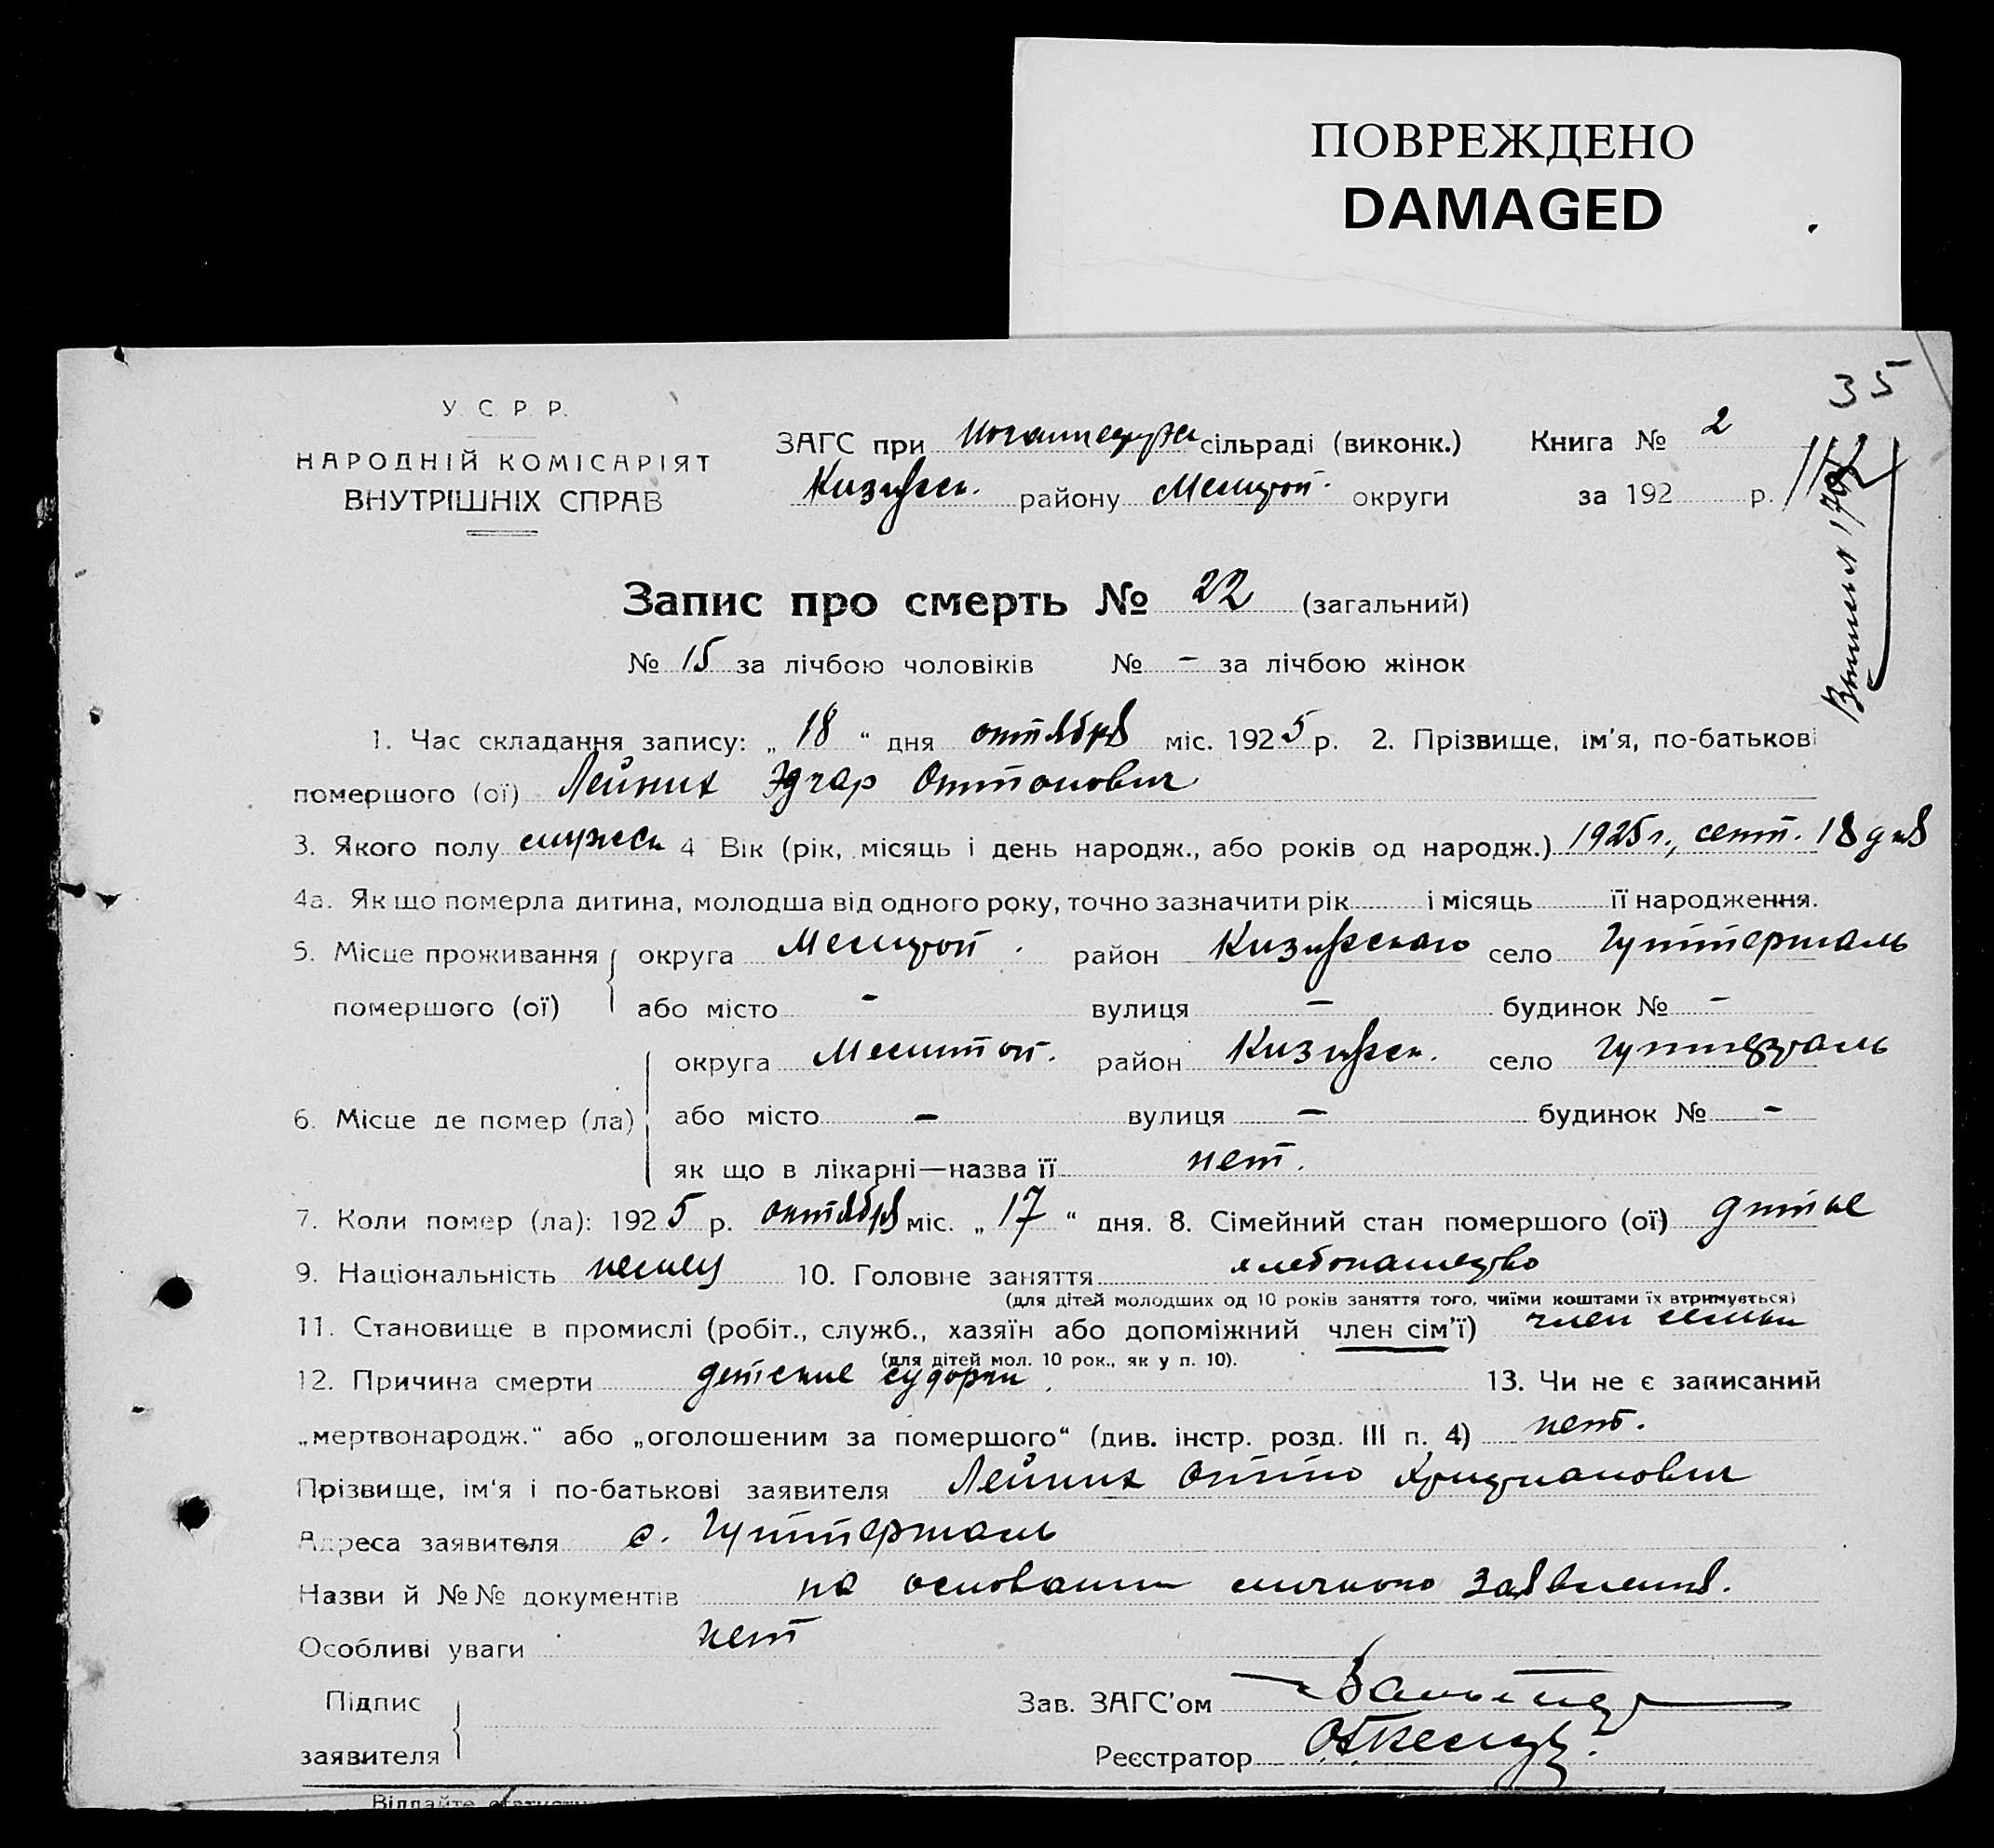 ПОВРЕЖДЕНО
DAMAGED
35
У. С. Р. Р.
НАРОДНІЙ КОМІСАРІЯТ
ВНУТРІШНІХ СПРАВ
ЗАГС при сільраді (виконк.) Книга № 2
району Мелитоп. округи за 192 р.
Запис про смерть № 22 (загальний)
№ 15 за лічбою чоловіків № - за лічбою жінок
1. Час складання запису: „ 18 “ дня октября міс. 1925 р. 2. Прізвище, ім'я, по-батькові
помершого (ої) Лейних Эдгар Оттонович
3. Якого полу мужск 4 Вік (рік, місяць і день народж., або років од народж.) 1925 г., сент. 18 дня
4а. Як що померла дитина, молодша від одного року, точно зазначити рік і місяць її народження.
5. Місце проживання округа Мелитоп. район село Гуттерталь
помершого (ої) або місто - вулиця - будинок № -
округа Мелитоп. район село Гуттерталь
6. Місце де помер (ла) або місто - вулиця - будинок № -
як що в лікарні—назва її нет.
7. Коли помер (ла): 1925 р. октября міс. „ 17 “ дня. 8. Сімейний стан помершого (ої) дитые
9. Національність немец 10. Головне заняття хлебопашество
(для дітей молодших од 10 років заняття того, чиїми коштами їх втримується)
11. Становище в промислі (робіт., служб., хазяїн або допоміжний член сім'ї) член семьи
(для дітей мол. 10 рок., як у п. 10).
12. Причина смерти детские судорги. 13. Чи не є записаний
„мертвонародж.“ або „оголошеним за помершого“ (див. інстр. розд. III п. 4) нет.
Прізвище, ім'я і по-батькові заявителя Лейних Отто Христианович
Адреса заявителя с. Гуттерталь
Назви й №№ документів на основании личного заявления.
Особливі уваги нет
Підпис
заявителя
Зав. ЗАГС'ом
Реєстратор